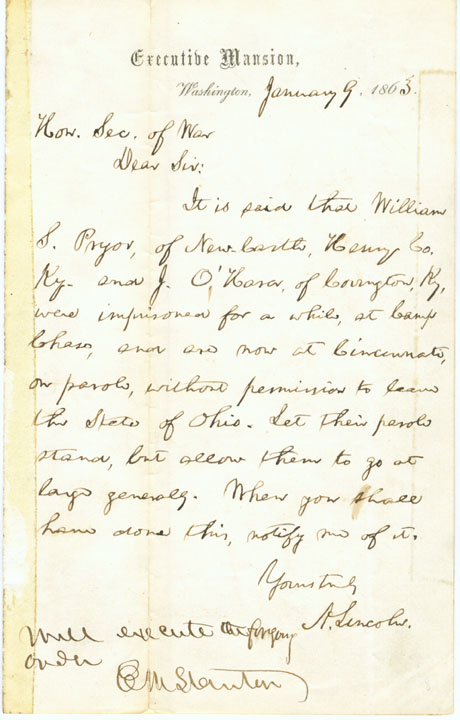 Executive Mansion,
Washington, January 9. 1863.
Hon. Sec. of War
Dear Sir:
It is said that William
S. Pryor, of New-Castle, Henry Co.
Ky. and J. O'Hara, of Covington, Ky,
were imprisoned for a while, at Camp
Chase, and are now at Cincinnati,
on parole, without permission to leave
the State of Ohio. Let their parole
stand, but allow them to go at
large generally. When you shall
have done this, notify me of it.
Yours truly
A. Lincoln.
will execute the forgoing
order
E M Stanton